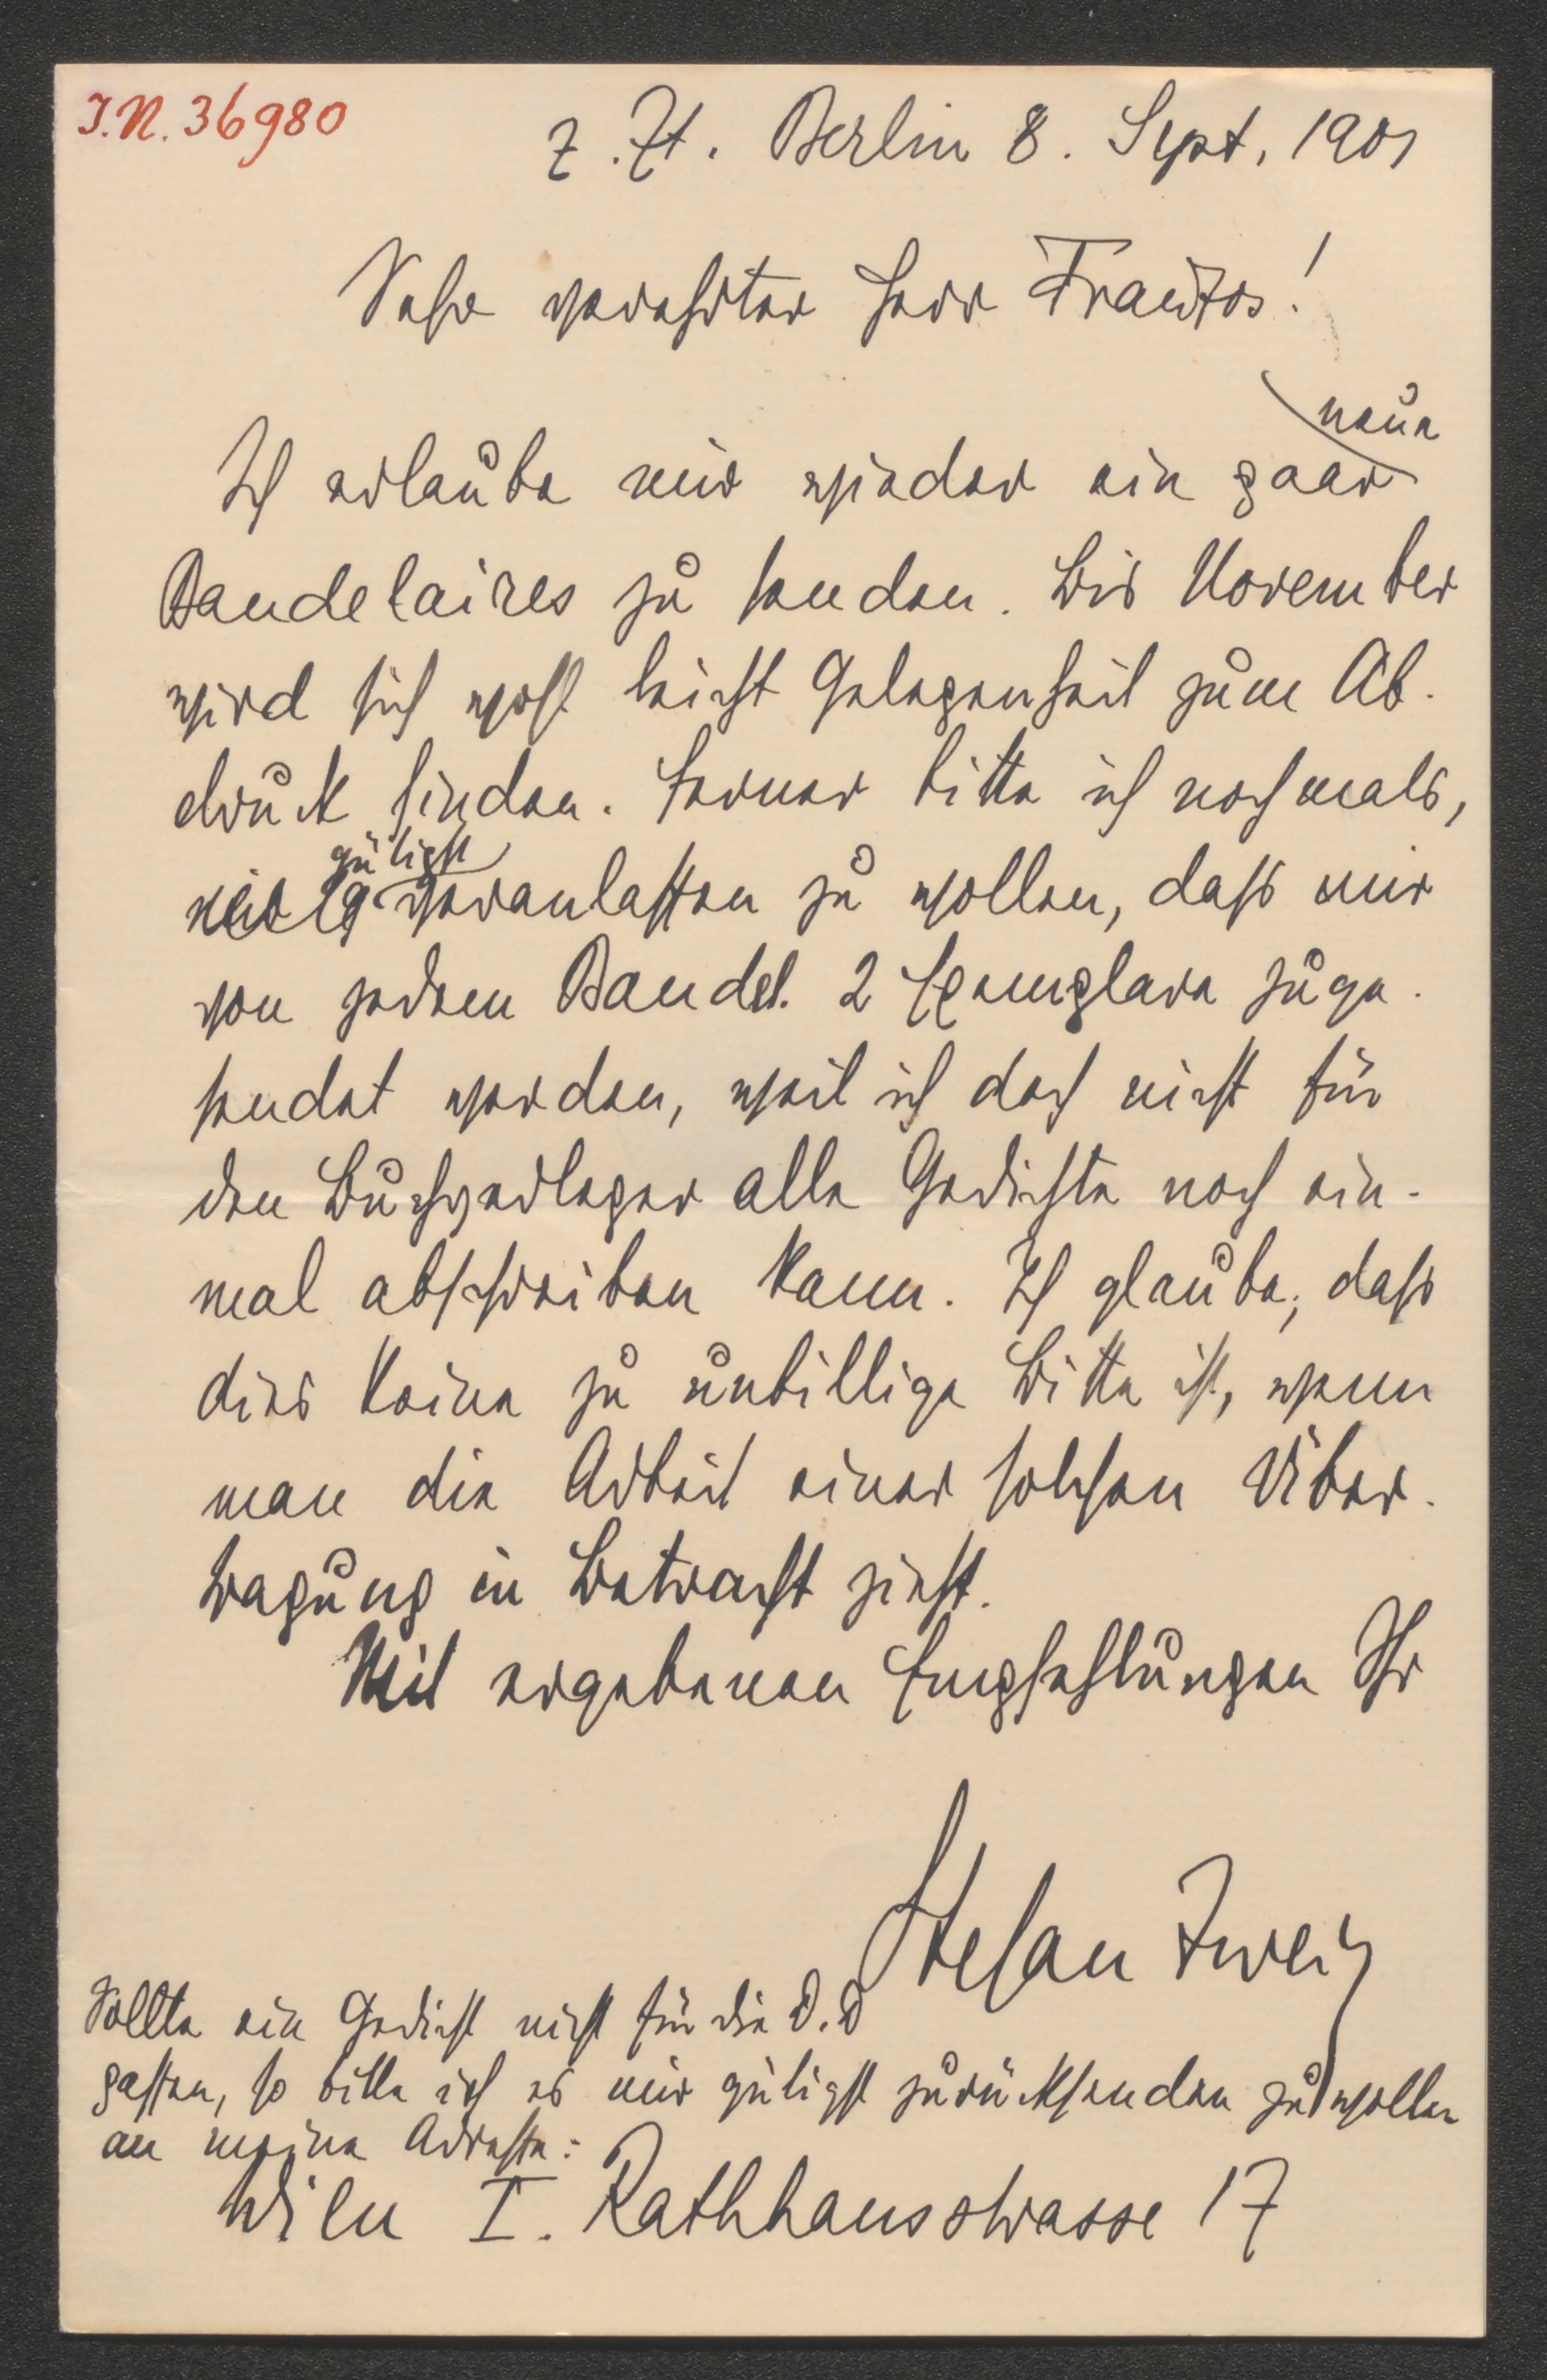 I.N. 36980
z. Zt. Berlin 8. Sept. 1901
Sehr verehrter Herr Franzos!
neue
Ich erlaube mir wieder ein paar
Baudelaires zu senden. Bis November
wird sich wohl leicht Gelegenheit zum Ab-
druck finden. Ferner bitte ich nochmals,
gütigst
veranlassen zu wollen, dass mir
von jedem Baudel. 2 Exemplare zuge-
sendet werden, weil ich doch nicht für
den Buchverleger alle Gedichte noch ein-
mal abschreiben kann. Ich glaube, dass
dies keine zu unbillige Bitte ist, wenn
man die Arbeit einer solchen Über-
tragung in Betracht zieht.
Mit ergebenen Empfehlungen Ihr
Stefan Zweig
Sollte ein Gedicht nicht für die D.D
passen, so bitte ich es mir gütigst zurücksenden zu wollen
an meine Adresse:
Wien I. Rathhausstrasse 17